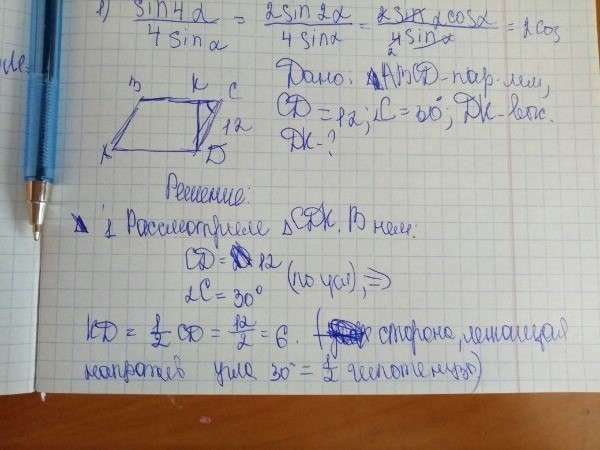 1) sin4α / 4sinα = 2sin2α / 4sinα = 2sinα2cosα / 4sinα 2 = 2cos
Дано: ABCD-пар-мм,
CD=12; ∠C=30°; DK-выс.
DK-?
B K C
12
A D
Решение:
1 Рассмотрим ΔCDK. В нем:
CD= 12
∠C=30° (по усл) ⇒
KD = 1/2 CD = 12/2 = 6. ( сторона, лежащая
напротив угла 30° = 1/2 гипотенузы)